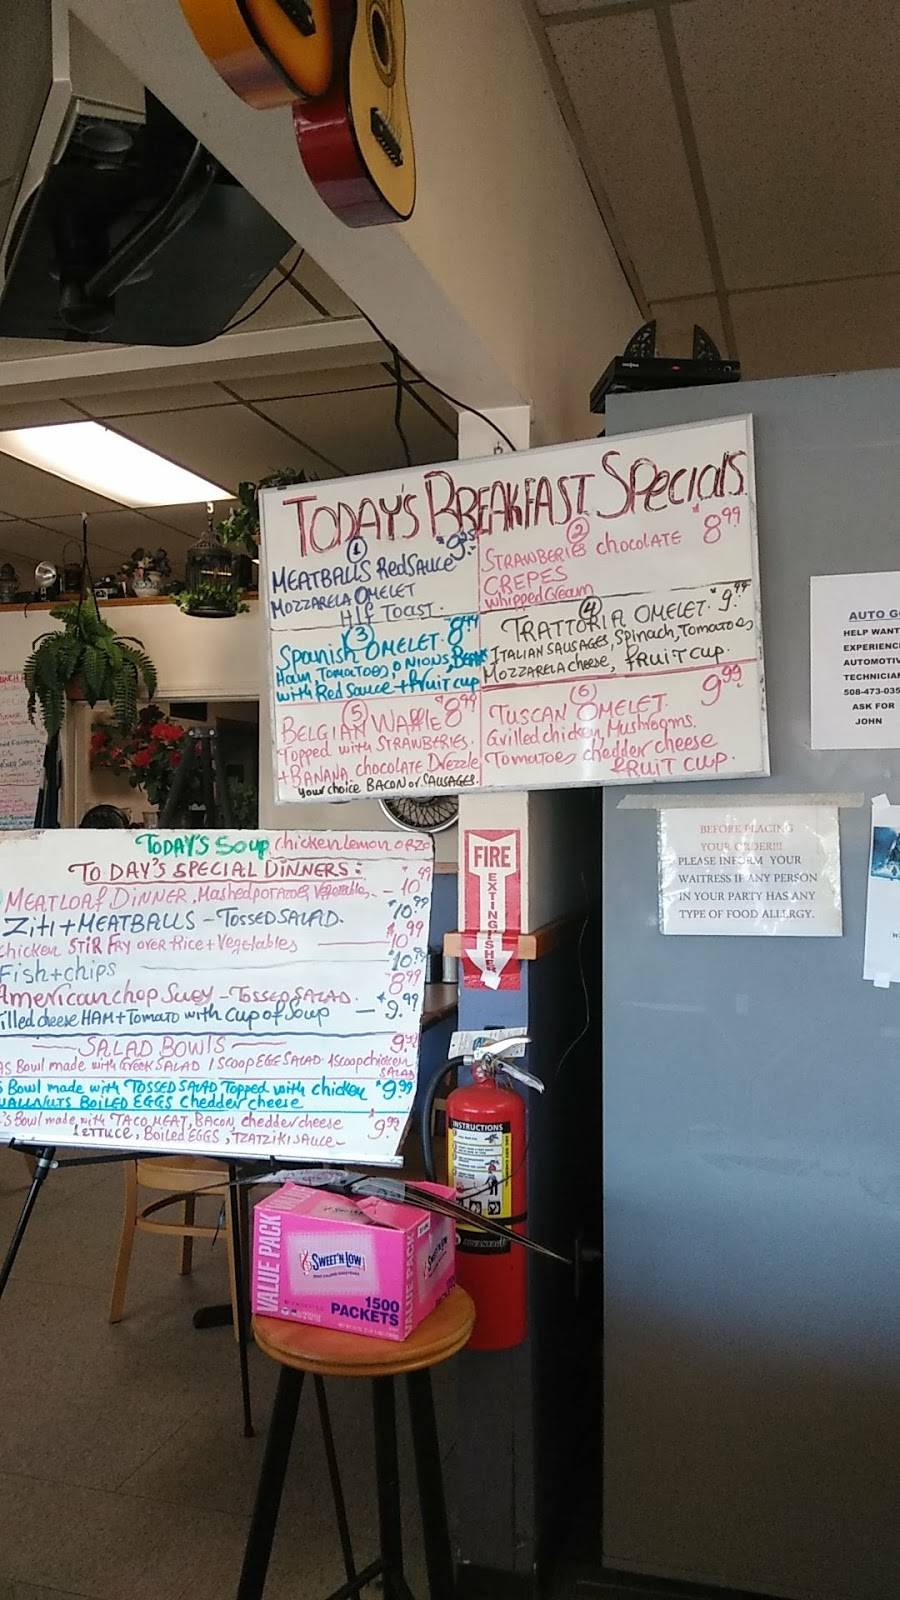 TODAY'S BREAKFAST SPecials
1
MEATBALLS RedSauce
MOZZARELA OMELET
Hlf Toast.
2
STRAWBERIES chocolate $8.99
CREPES
whippedcream
3
Spanish OMELET. 8.99
Ham, Tomatoes, ONIONS,
with Red Sauce + fruit cup
4
TRATTORIA OMELET. $9.99
ITALIAN SAUSAGES, Spinach, Tomatoes,
Mozzarela cheese, fruit cup.
5
BELGIAN Waffle $8.99
Topped with STRAWBERIES.
+ BANANA, chocolate Drezzle
your choice BACON or SAUSAGES.
6
TUSCAN OMELET 9.99
Grilled chicken, Mushrooms.
Tomatoes chedder cheese
fruit cup.
AUTO G
HELP WANT
EXPERIENC
AUTOMOTIV
TECHNICIA
508-473-035
ASK FOR
JOHN
BEFORE PLACING
YOUR ORDER!!!
PLEASE INFORM YOUR
WAITRESS IF ANY PERSON
IN YOUR PARTY HAS ANY
TYPE OF FOOD ALLERGY.
TODAY'S Soup chicken lemon orzo
TODAY'S SPECIAL DINNERS:
MEATLOAF DINNER, Mashed potatoes, Vegetables. - 10.99
Ziti + MEATBALLS - TOSSED SALAD. $10.99
chicken STIR FRY over Rice + Vegetables - 10.99
Fish + chips $10.99
American chop Suey - TOSSED SALAD. 8.99
illed cheese HAM + Tomato with cup of Soup - $9.99
SALAD BOWLS
Bowl made with Greek SALAD 1 scoop EGG SALAD 1 scoop chicken SALAD
Bowl made with TOSSED SALAD Topped with chicken $9.99
WALLNUTS BOILED EGGS chedder cheese
's Bowl made with TACO MEAT, BACON, chedder cheese 9.99
LETTUCE, Boiled EGGS, TZATZIKI SAUCE
FIRE
EXTINGUISHER
INSTRUCTIONS
VALUE PACK
Sweet'N Low
1500
PACKETS
VALUE PACK
Sweet'N Low
1500
PACKETS